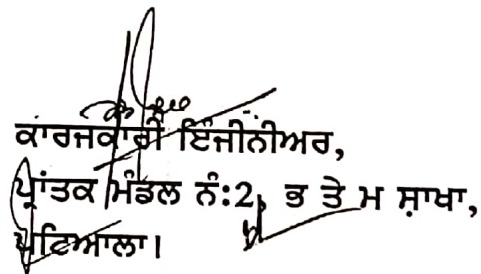 ਕਾਰਜਕਾਰੀ ਇੰਜੀਨੀਅਰ,
ਪ੍ਰਾਂਤਕ ਮੰਡਲ ਨੰ:2, ਭ ਤੇ ਮ ਸ਼ਾਖਾ,
ਪਟਿਆਲਾ।